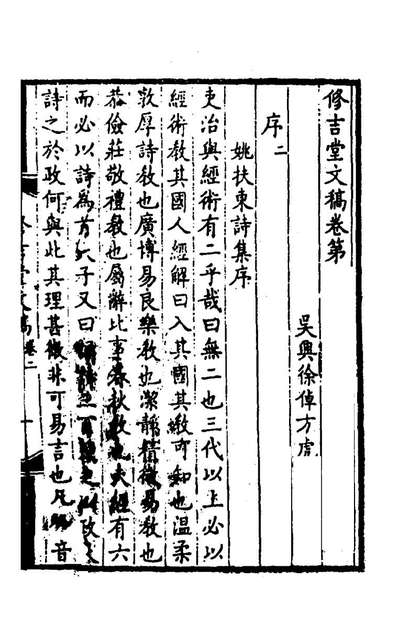 修吉堂文稿卷第
吳興徐倬方虎
序二
姚扶東詩集序
吏治與經術有二乎哉曰無二也三代以上必以
經術教其國人經解曰入其國其教可知也温柔
敦厚詩教也廣博易良樂教也潔靜精微易教也
恭儉莊敬禮教也屬辭比事春秋教也夫經有六
而必以詩為首夫子又曰誦詩三百授之以政
詩之於政何與此其理甚微非可易言也凡音
吉堂文稿卷二